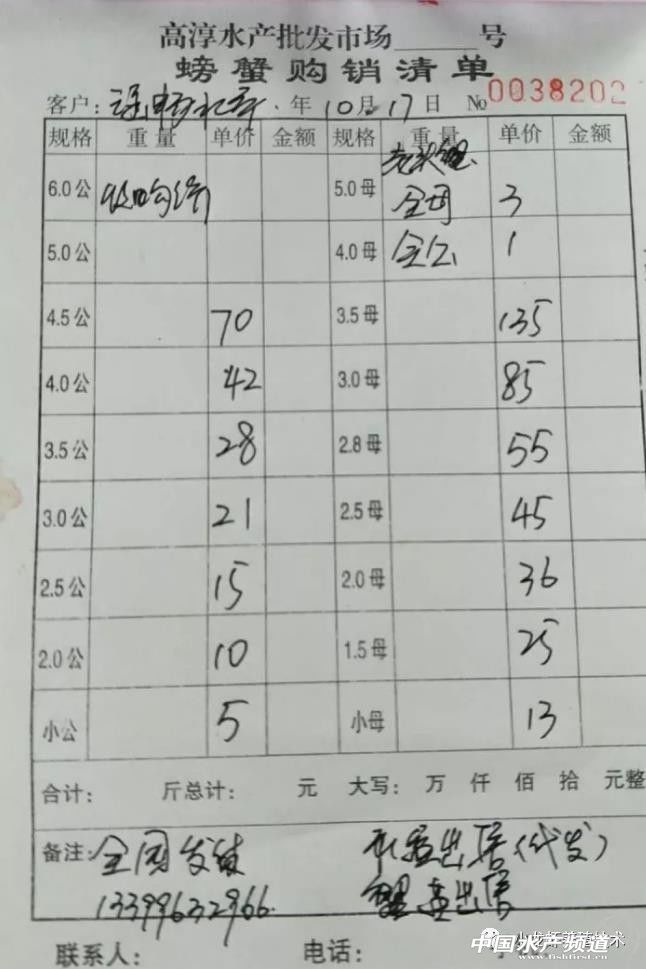 高淳水产批发市场______号
螃蟹购销清单
客户: 年 10月17日 No 0038202
规格 重量 单价 金额 规格 重量 单价 金额
6.0公 5.0母 全母 3
5.0公 4.0母 全公 1
4.5公 70 3.5母 135
4.0公 42 3.0母 85
3.5公 28 2.8母 55
3.0公 21 2.5母 45
2.5公 15 2.0母 36
2.0公 10 1.5母 25
小公 5 小母 13
合计: 斤总计: 元 大写: 万 仟 佰 拾 元整
备注: 全国发货 出售(代发)
13399632966 出售
联系人: 电话:
中国水产频道
www.fishfirst.cn